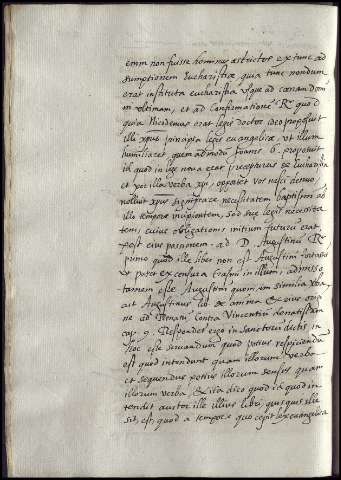 enim non fuisse homines astrictos ex tunc ad
sumptionem Eucharistiæ, quia tunc nondum
erat instituta eucharistia usque ad cœnam dom
in ultimam, et ad confirmatione R. quod
quia Nicodemus erat legis doctor ideo proposuit
illi xpus principia legis euangelicæ, ut illum
humiliaret, quem admodum Joanis 6. proposuit
id quod in lege nova erat præcepturus de Eucharistia
et per illa verba xpi, oportet vos nasci denuo,
noluit xpus significare necessitatem baptismi ab
illo tempore incipientem, sed suæ legis necessita
tem, cuius obligationis initium futurum erat
post eius passionem. ad D. Augustinum R.
primo quod ille liber non est Augustini
ut patet ex censura Erasmi in illum, admisso
tamen esse Augustini quoniam similia verba
ait Augustinus lib. de anima et eius origi
ne ad contra Vincentium donatistam
cap. 9. Respondet ergo in sanctorum dictis in
hoc esse servandum quod potius respiciendum
est quod intendunt quam illorum verba
et sequendus potius illorum sensus quam
illorum verba, et ita dico quod id quod in
tendit auctor ille illius libri, quisquis ille
sit, est, quod a tempore quo cepit lex euangelica